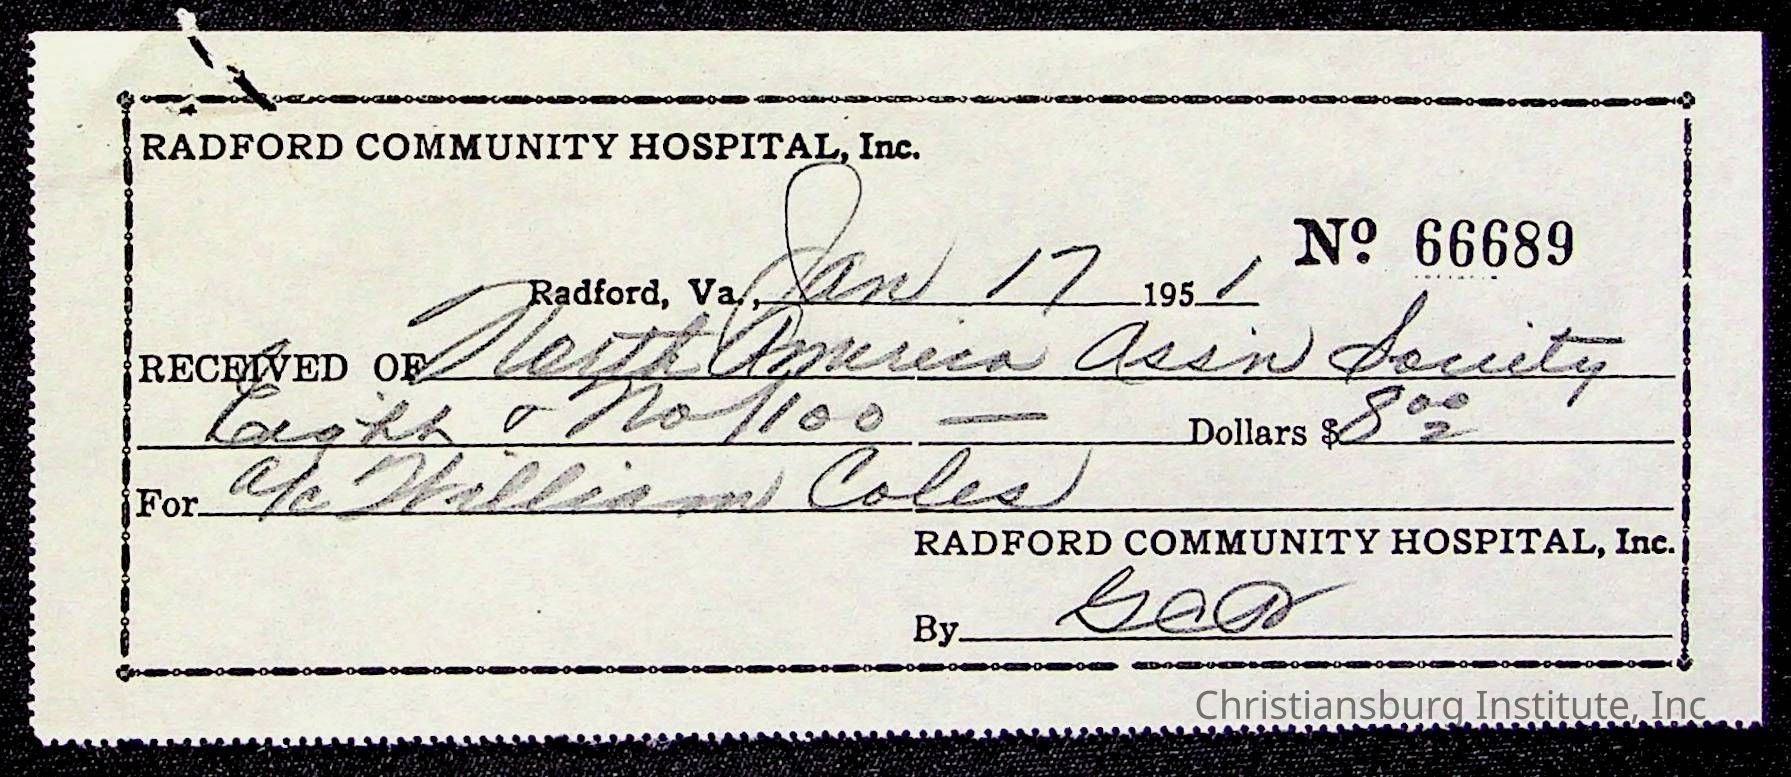 RADFORD COMMUNITY HOSPITAL, Inc.
Nº 66689
Radford, Va., Jan 17 1951
RECEIVED OF North America Ass'n Society
Eight & No/100 — Dollars $8.00
For a/c William Coles
RADFORD COMMUNITY HOSPITAL, Inc.
By
Christiansburg Institute, Inc